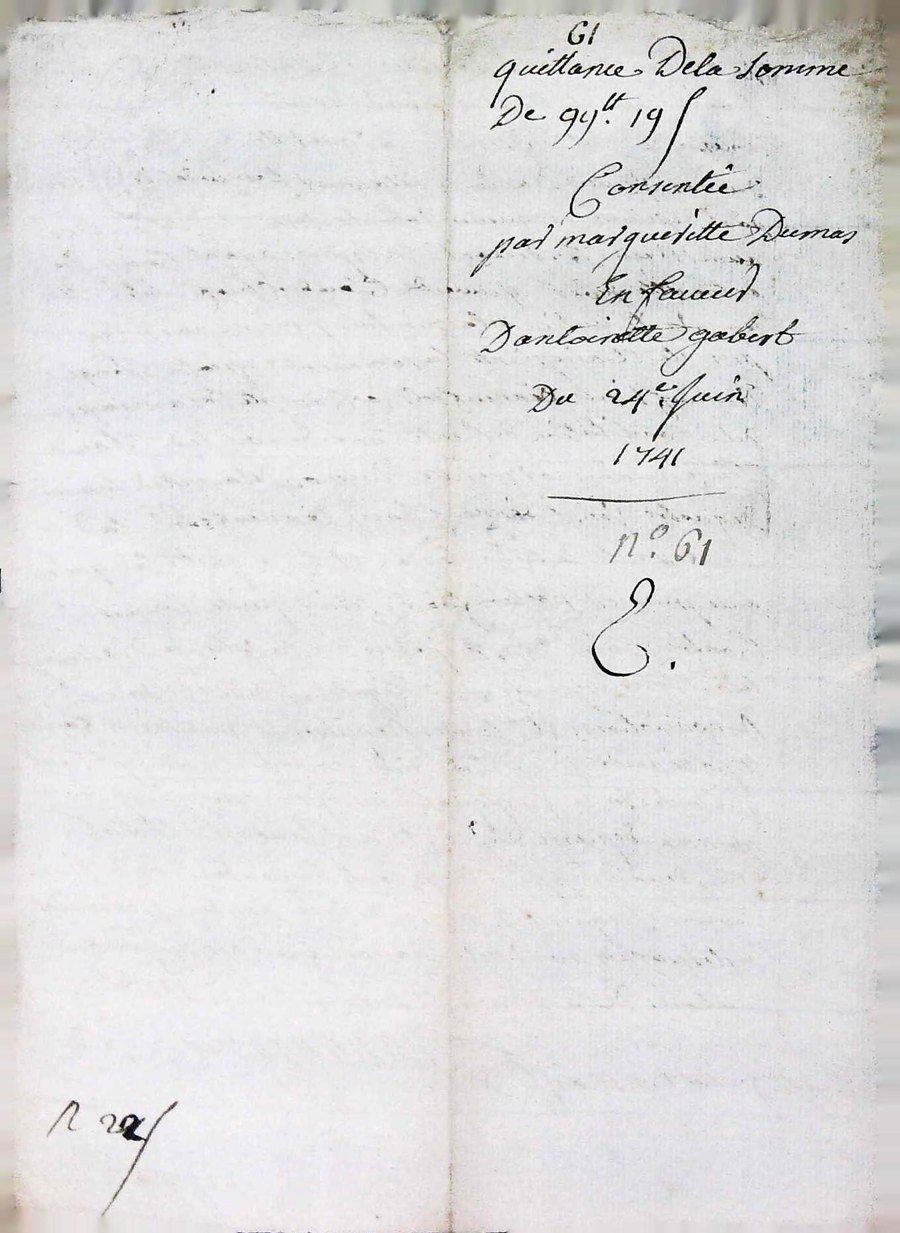 61
quittance Dela somme
De 99tt. 19 s
Consentie
par margueritte Dumas
En faveur
Dantoinette gabert
Du 24e. Juin
1741
n.o 61
E.
R 22 s